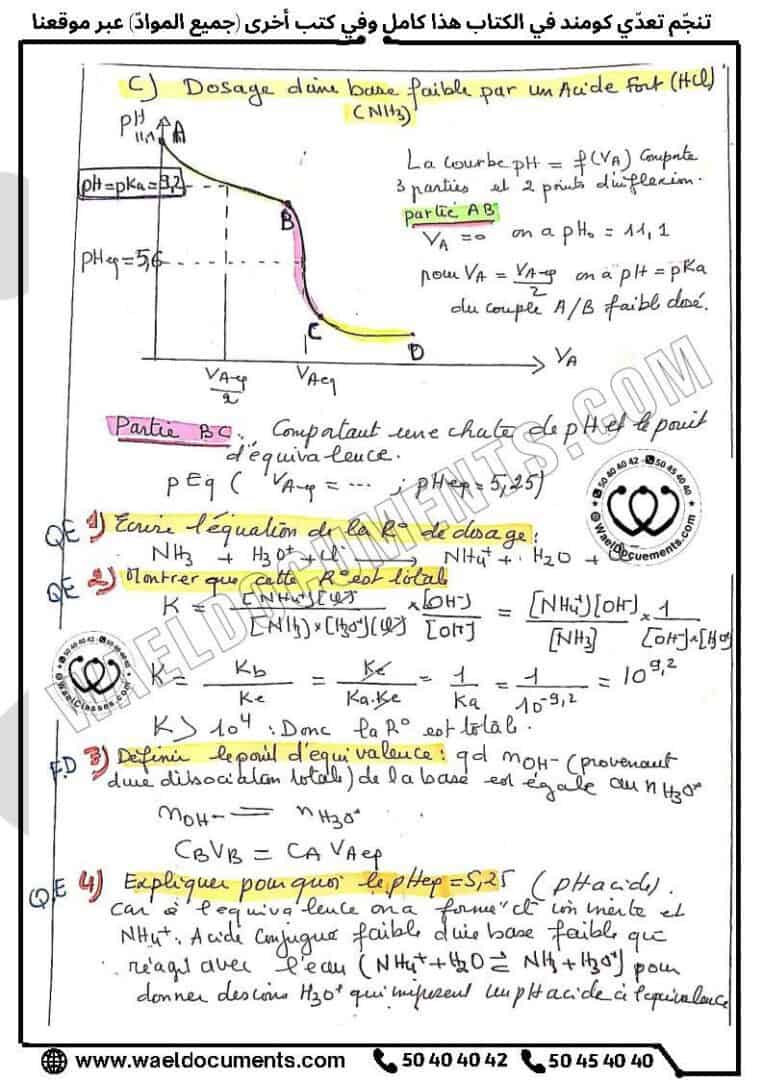 تنجّم تعدّي كومند في الكتاب هذا كامل وفي كتب أخرى (جميع الموادّ) عبر موقعنا
C) Dosage d'une base faible par un Acide Fort (HCl)
(NH3)
pH
11,1 A
pH=pKa=9,2
B
pHeq=5,6
C
D
VA-eq/2
VAeq
VA
La courbe pH = f(VA) Comporte
3 parties et 2 points d'inflexion.
partie AB
VA=0 on a pH0 = 11,1
pour VA = VA-eq/2 on a pH = pKa
du couple A/B faible dosé.
Partie BC: Comportant une chute de pH et le point
d'équivalence.
pEq ( VA-eq = ... ; pHeq = 5,25)
QE 1) Ecrire l'équation de la R° de dosage:
NH3 + H3O+ + Cl- → NH4+ + H2O +
QE 2) Montrer que cette R° est total
K = [NH4+][Cl-]/[NH3]×[H3O+][Cl-] × [OH-]/[OH-] = [NH4+][OH-]/[NH3] × 1/[OH-]×[H3O+]
K = Kb/Ke = Ke/Ka.Ke = 1/Ka = 1/10-9,2 = 10 9,2
K > 10 4 : Donc la R° est total.
F.D 3) Définir le point d'équivalence: qd nOH- (provenant
d'une dissociation total) de la base est égale au nH3O+
nOH- = nH3O+
CBVB = CA VAeq
Q.E 4) Expliquer pourquoi le pHeq = 5,25 (pH acide).
Car à l'équivalence on a formé Cl- ion inerte et
NH4+. Acide Conjugué faible d'une base faible qui
réagit avec l'eau (NH4+ + H2O ⇌ NH3 + H3O+) pour
donner des ions H3O+ qui imposent un pH acide à l'équivalence
WAELDOCUMENTS.COM
50 40 40 42 - 50 45 40 40
WaelDocuements.com
50 40 40 42
WaelClasses.com
www.waeldocuments.com 50 40 40 42 50 45 40 40